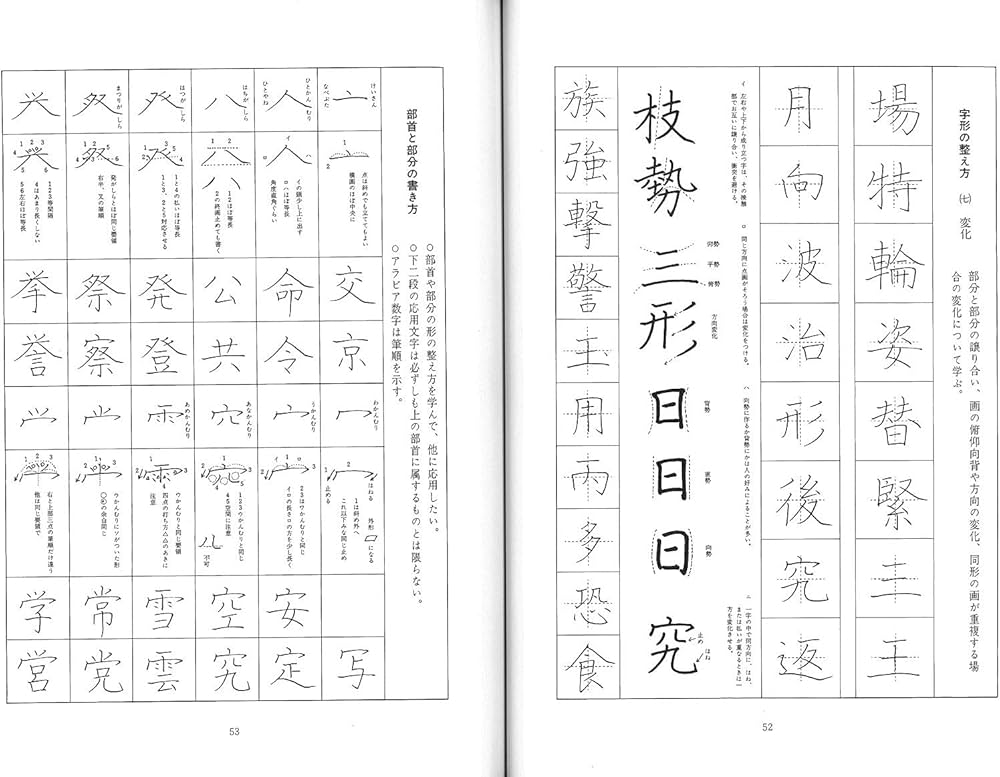 字形の整え方 ㈦ 変化
部分と部分の譲り合い、画の俯仰向背や方向の変化、同形の画が重複する場
合の変化について学ぶ。
場
特
輪
姿
替
緊
月
向
波
治
形
後
究
返
イ 左右や上下から成り立つ字は、その接触
部でお互いに譲り合い、衝突を避ける。
枝
勢
ロ 同じ方向に点画がそろう場合は変化をつける。
三
仰勢
平勢
俯勢
形
方向変化
ハ 向勢に作るか背勢にかは人の好みによることが多い。
日
背勢
日
直勢
日
向勢
ニ 一字の中で同方向に、はね、
または払いが重なるときは一
方を変化させる。
究
止め
はね
族
強
撃
警
玉
用
両
多
恐
食
52
部首と部分の書き方
○部首や部分の形の整え方を学んで、他に応用したい。
○下二段の応用文字は必ずしも上の部首に属するものとは限らない。
○アラビア数字は筆順を示す。
けいさん
なべぶた
亠
点は斜めでも立ててもよい
横画のほぼ中央に
交
京
わかんむり
冖
はねる
1は斜め外へ
これ以下みな同じ止め
止める
外形
になる
写
ひとかんむり
ひとやね
人
イの頭少し上に出す
ロハほぼ等長
角度直角ぐらい
命
令
うかんむり
宀
2 3はうかんむりと同じ
イロの長さロの方を少し長く
安
定
はちがしら
八
1 2ほぼ等長
2の終画止めても書く
公
共
あなかんむり
1 2 3ウかんむりと同じ
4 5空間に注意
不可
空
究
はつがしら
癶
1と4の払いほぼ等長
1と3、2と5対応させる
発
登
あめかんむり
ウかんむりと同じ要領
四点の打ち方△△のあきに
注意
雪
雲
まつりがしら
発がしらとほぼ同じ要領
右半、又の筆順
祭
察
ウかんむりにソがついた形
の余白同じ
常
党
1 2 3等間隔
4はあまり長くしない
5 6左右ほぼ等長
挙
誉
右と上部三点の筆順だけ違う
他は同じ要領で
学
営
53